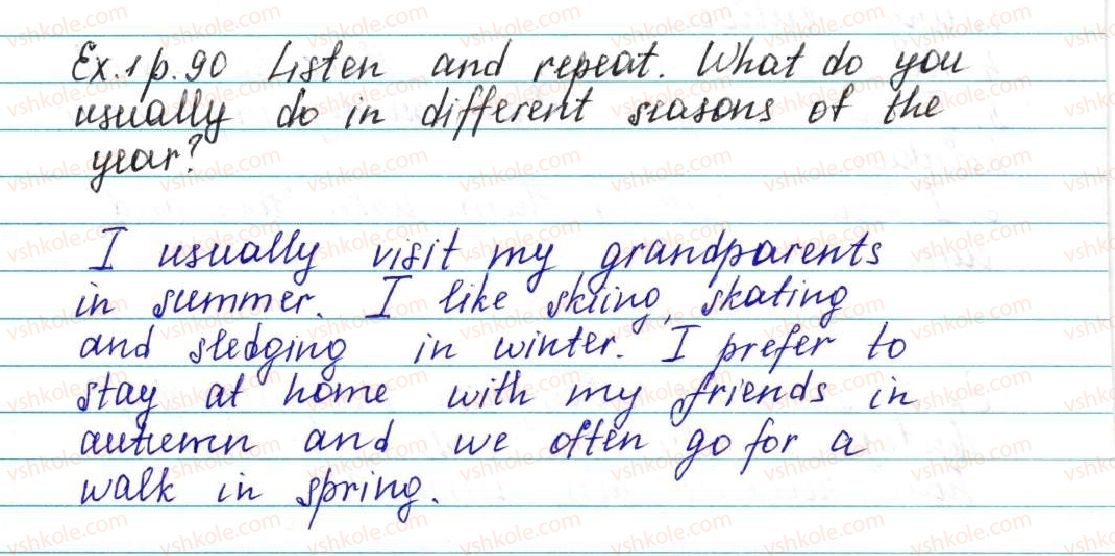 Ex.1 p.90 Listen and repeat. What do you
usually do in different seasons of the
year?
I usually visit my grandparents
in summer. I like skiing, skating
and sledging in winter. I prefer to
stay at home with my friends in
autumn and we often go for a
walk in spring.